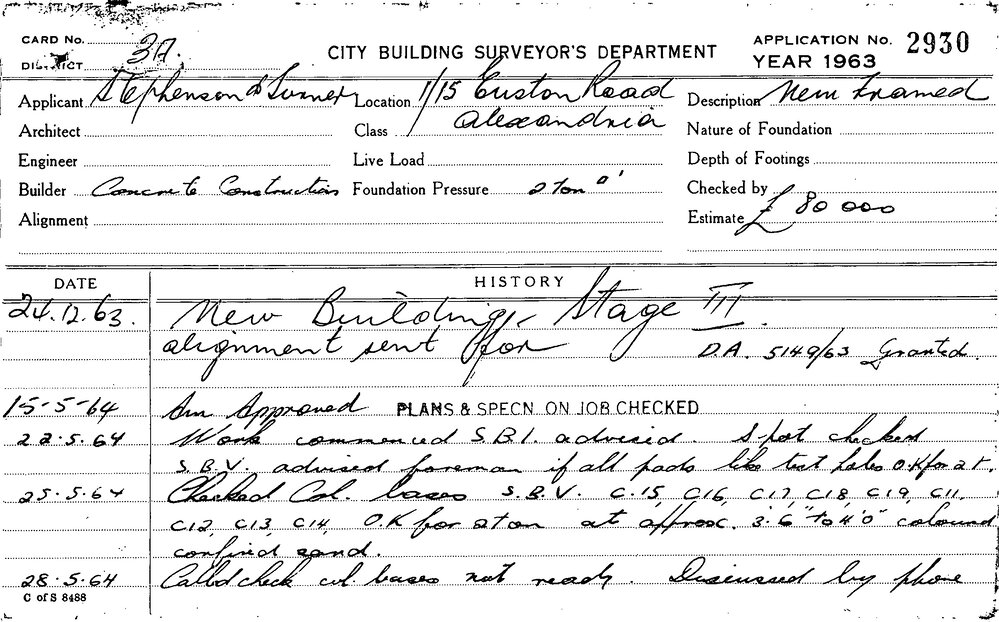 CARD No. 37.
DISTRICT
CITY BUILDING SURVEYOR'S DEPARTMENT
APPLICATION No. 2930
YEAR 1963
Applicant Stephenson & Turner Location 1/15 Euston Road Description New Framed
Architect Class Alexandria Nature of Foundation
Engineer Live Load Depth of Footings
Builder Concrete Constructions Foundation Pressure 2 ton □' Checked by
Alignment Estimate £ 80 000
DATE HISTORY
24.12.63. New Building - Stage III.
alignment sent for D.A. 5149/63 Granted.
15-5-64 Approved PLANS & SPECN ON JOB CHECKED
22.5.64 Work commenced S.B.I. advised. Spot checked
S.B.V. advised foreman if all pads like test holes O.K for 2 t.
25.5.64 Checked Col. bases S.B.V. C.15, C16, C17, C18, C19, C11,
C12, C13, C14, O.K for 2 ton at approx. 3'6" to 4'0" coloured
confined sand.
28.5.64 Called check col. bases not ready. Discussed by phone
C of S 8488